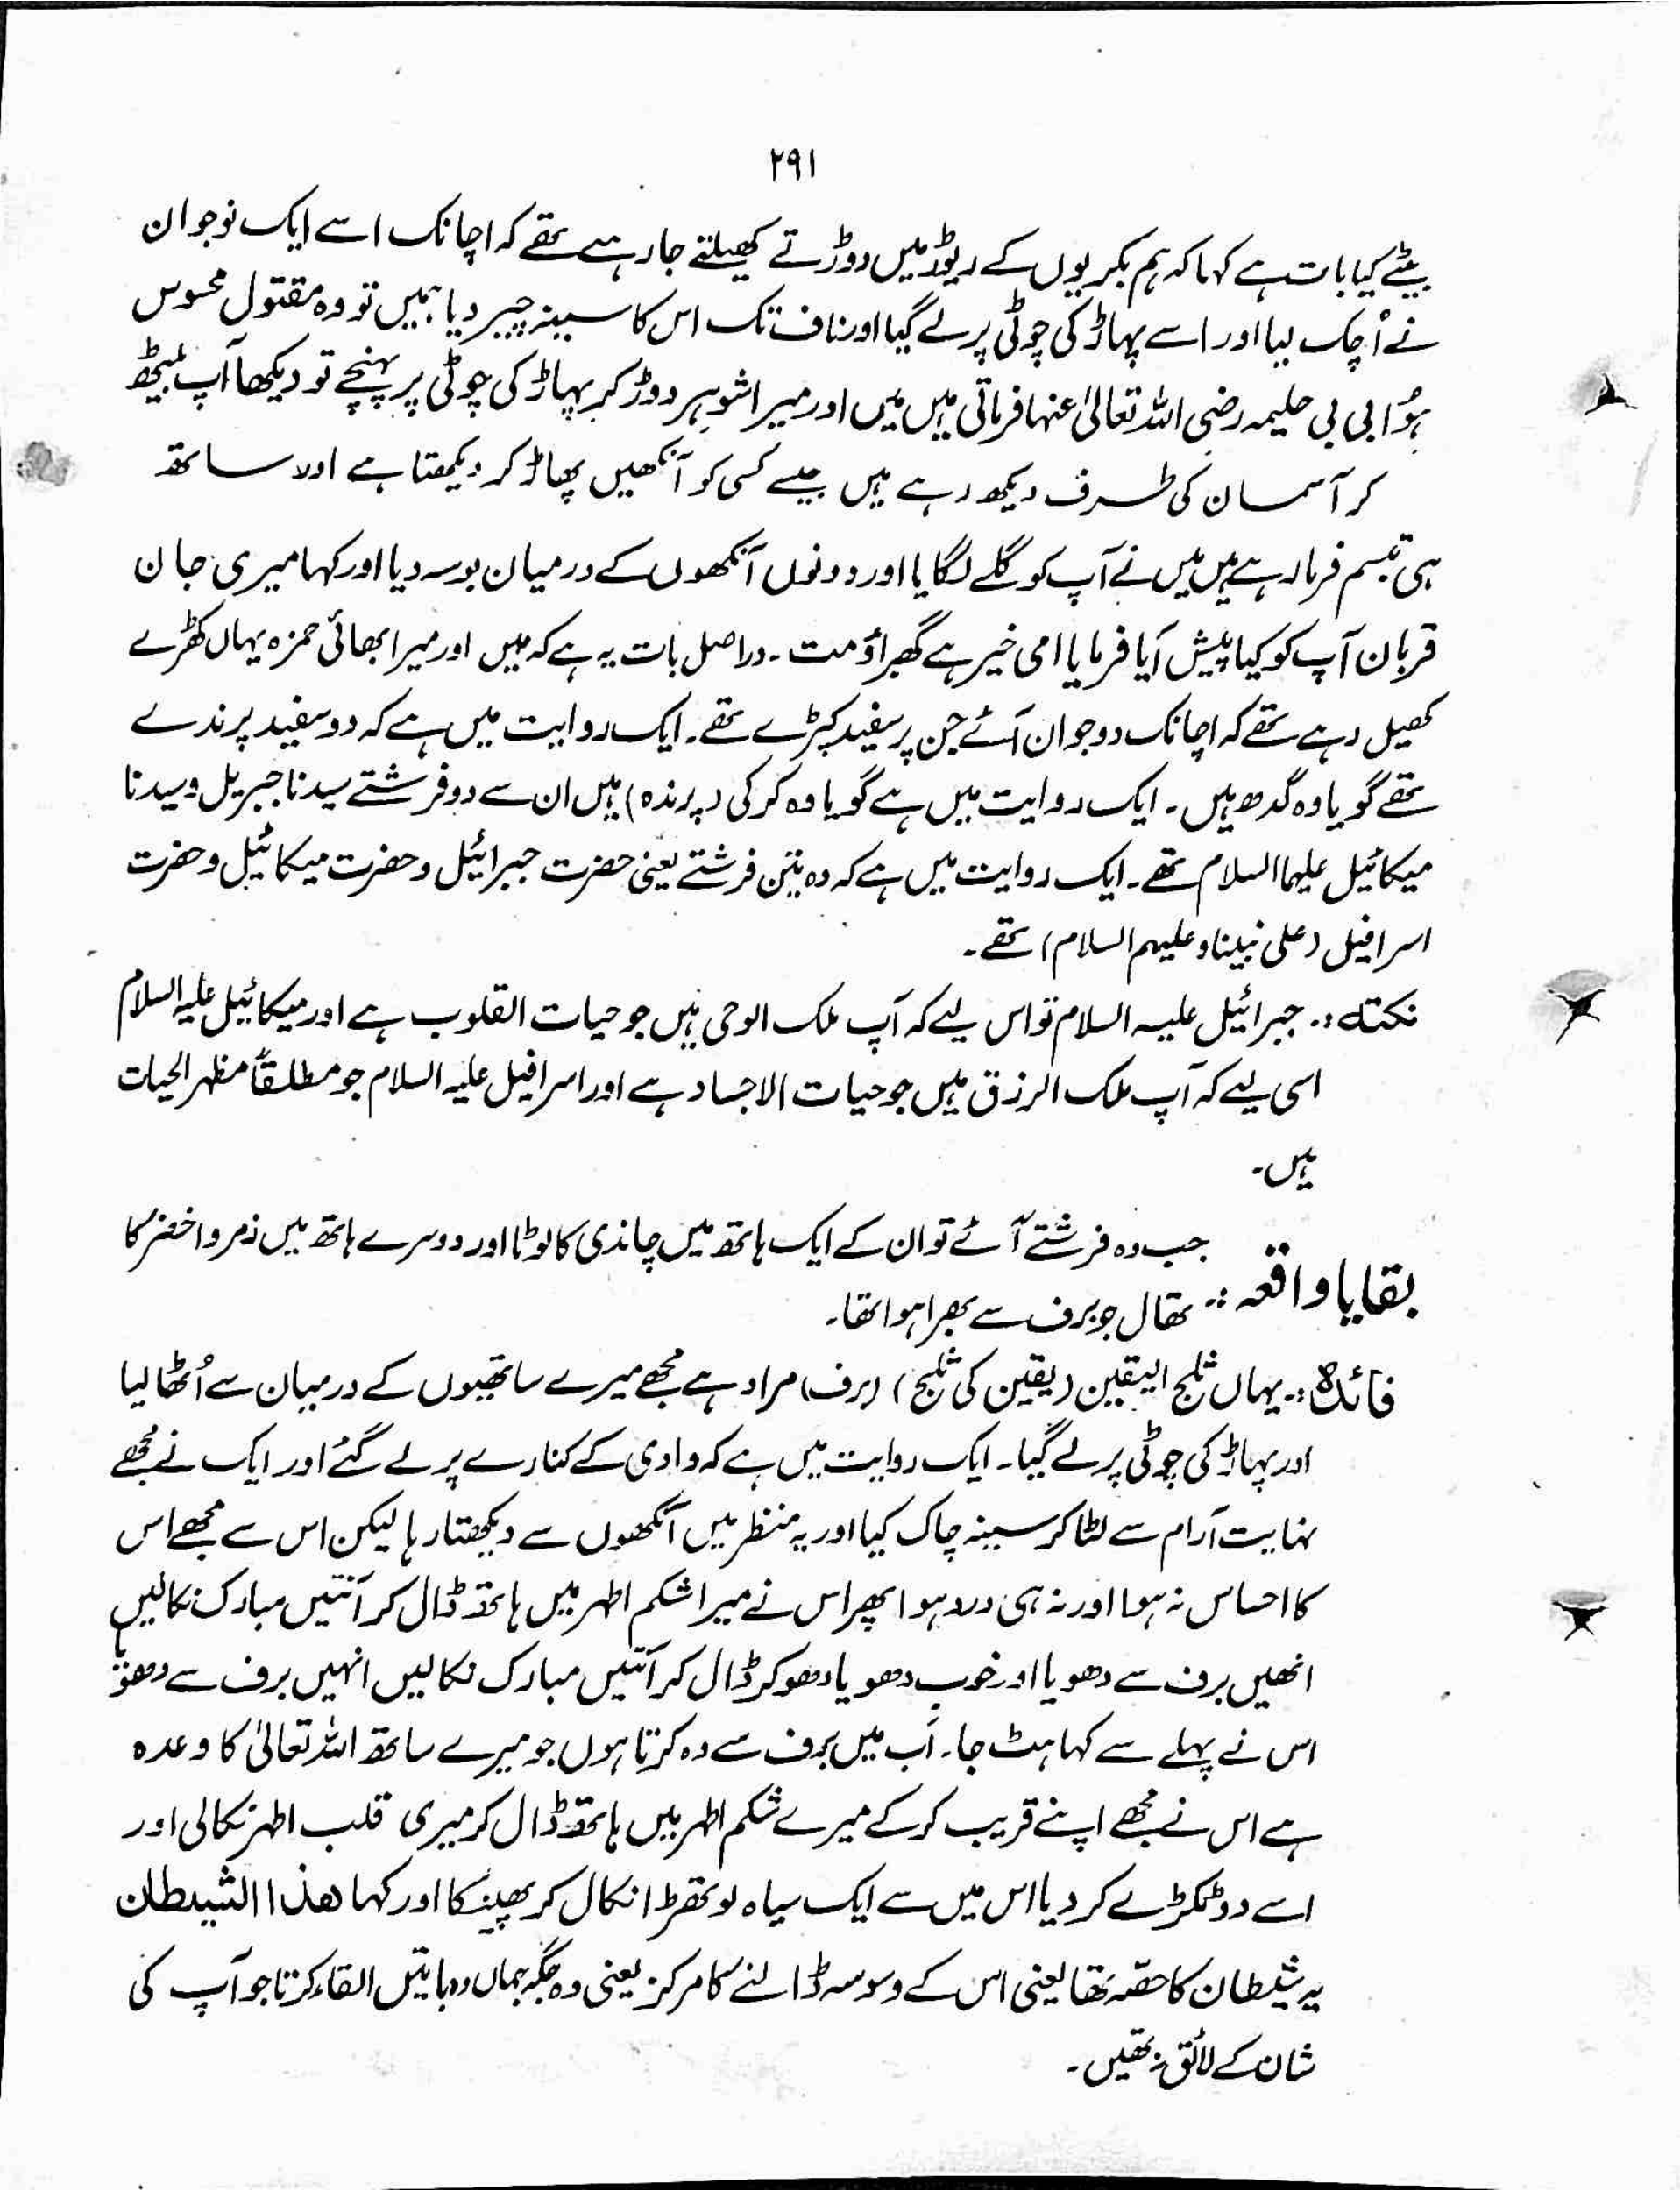 ۲۹۱
بیٹے کیا بات ہے کہا کہ ہم بکریوں کے ریوڑ میں دوڑتے کھیلتے جا رہے تھے کہ اچانک اسے ایک نوجوان
نے اُچک لیا اور اسے پہاڑ کی چوٹی پر لے گیا اور ناف تک اس کا سینہ چیر دیا ہمیں تو وہ مقتول محسوس
ہُوا بی بی حلیمہ رضی اللہ تعالیٰ عنہا فرماتی ہیں میں اور میرا شوہر دوڑ کر پہاڑ کی چوٹی پر پہنچے تو دیکھا آپ بیٹھ
کر آسمان کی طرف دیکھ رہے ہیں جیسے کسی کو آنکھیں پھاڑ کر دیکھتا ہے اور ساتھ
ہی تبسم فرما رہے ہیں میں نے آپ کو گلے لگایا اور دونوں آنکھوں کے درمیان بوسہ دیا اور کہا میری جان
قربان آپ کو کیا پیش آیا فرمایا امی خیر ہے گھبراؤ مت ۔ دراصل بات یہ ہے کہ میں اور میرا بھائی حمزہ یہاں کھڑے
کھیل رہے تھے کہ اچانک دو جوان آئے جن پر سفید کپڑے تھے۔ ایک روایت میں ہے کہ دو سفید پرندے
تھے گویا وہ گدھ ہیں ۔ ایک روایت میں ہے گویا وہ کرکی (پرندہ) ہیں ان سے دو فرشتے سیدنا جبریل و سیدنا
میکائیل علیہما السلام تھے ۔ ایک روایت میں ہے کہ وہ تین فرشتے یعنی حضرت جبرائیل و حضرت میکائیل و حضرت
اسرافیل (علی نبینا و علیہم السلام) تھے ۔
نکتہ :۔ جبرائیل علیہ السلام تو اس لیے کہ آپ ملک الوحی ہیں جو حیات القلوب ہے اور میکائیل علیہ السلام
اسی لیے کہ آپ ملک الرزق ہیں جو حیات الاجساد ہے اور اسرافیل علیہ السلام جو مطلقاً مظہر الحیات
ہیں ۔
جب وہ فرشتے آئے تو ان کے ایک ہاتھ میں چاندی کا لوٹا اور دوسرے ہاتھ میں زمرو اخضر کا
بقایا واقعہ :۔ تھال جو برف سے بھرا ہوا تھا ۔
فائدہ :۔ یہاں ثلج الیقین (یقین کی ثلج) (برف) مراد ہے مجھے میرے ساتھیوں کے درمیان سے اُٹھا لیا
اور پہاڑ کی چوٹی پر لے گیا ۔ ایک روایت میں ہے کہ وادی کے کنارے پر لے گئے اور ایک نے مجھے
نہایت آرام سے لٹا کر سینہ چاک کیا اور یہ منظر میں آنکھوں سے دیکھتا رہا لیکن اس سے مجھے اس
کا احساس نہ ہوا اور نہ ہی درد ہوا پھر اس نے میرا شکم اطہر میں ہاتھ ڈال کر آنتیں مبارک نکالیں
انھیں برف سے دھویا اور خوب دھویا دھو کر ڈال کر آنتیں مبارک نکالیں انہیں برف سے دھویا
اس نے پہلے سے کہا ہٹ جا ۔ اَب میں برف سے وہ کرتا ہوں جو میرے ساتھ اللہ تعالیٰ کا وعدہ
ہے اس نے مجھے اپنے قریب کر کے میرے شکم اطہر میں ہاتھ ڈال کر میری قلب اطہر نکالی اور
اسے دو ٹکڑے کر دیا اس میں سے ایک سیاہ لوتھڑا نکال کر پھینکا اور کہا ھذا الشیطان
یہ شیطان کا حصّہ تھا یعنی اس کے وسوسہ ڈالنے کا مرکز یعنی وہ جگہ جہاں وہ باتیں القاء کرتا جو آپ کی
شان کے لائق نہ تھیں ۔